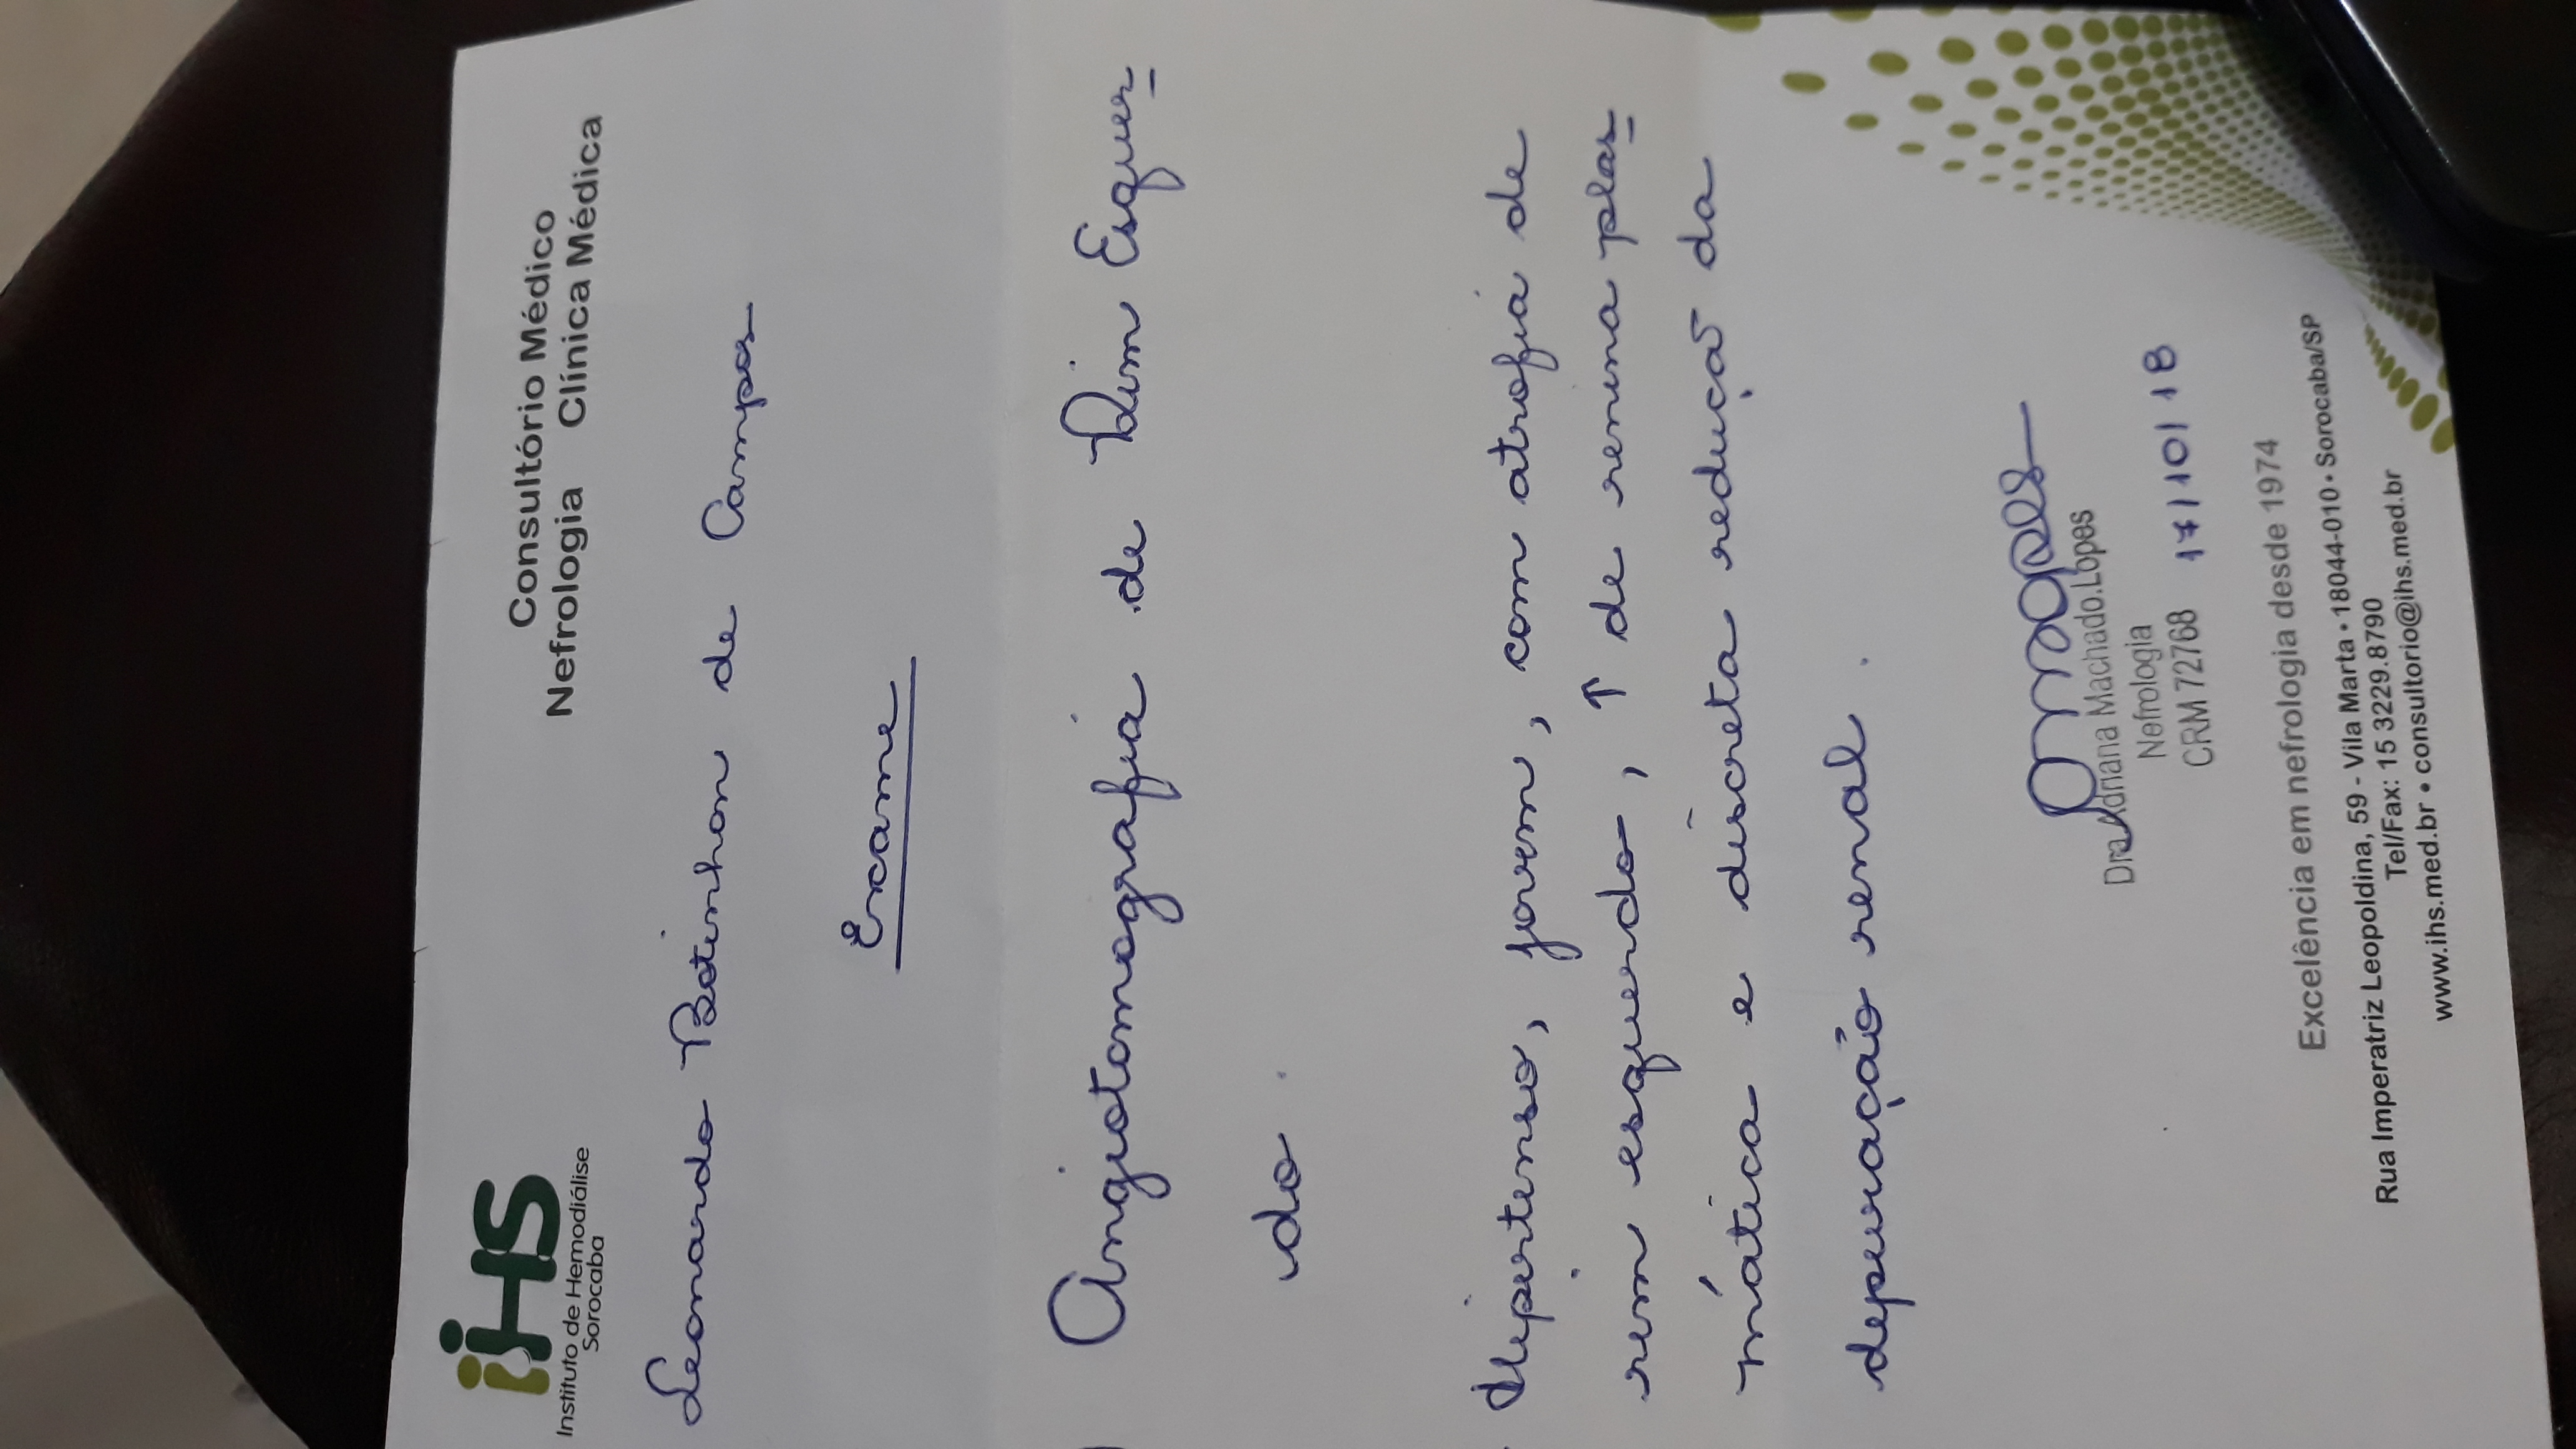 iHS
Instituto de Hemodiálise
Sorocaba
Consultório Médico
Nefrologia Clínica Médica
Leonardo Botinhon de Campos
Exame
Angiotomografia de Rim Esquer-
do.
Hipertenso, jovem, com atrofia de
rim esquerdo, ↑ de renina plas-
mática e discreta redução da
depuração renal.
Dra Adriana Machado.Lopes
Nefrologia
CRM 72768 17/10/18
Excelência em nefrologia desde 1974
Rua Imperatriz Leopoldina, 59 - Vila Marta • 18044-010 • Sorocaba/SP
Tel/Fax: 15 3229.8790
www.ihs.med.br • consultorio@ihs.med.br